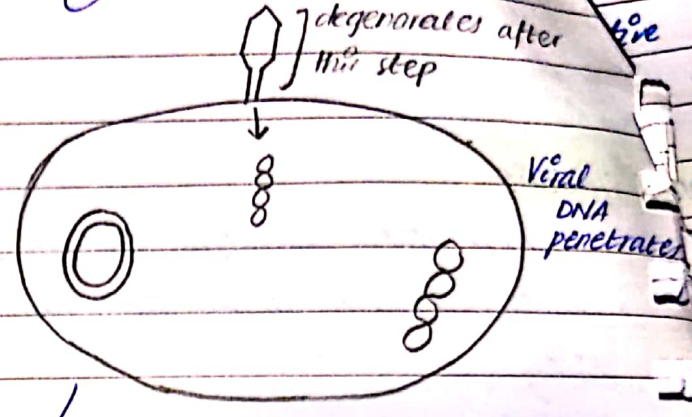 degenorates after
this step
Viral
DNA
penetrates